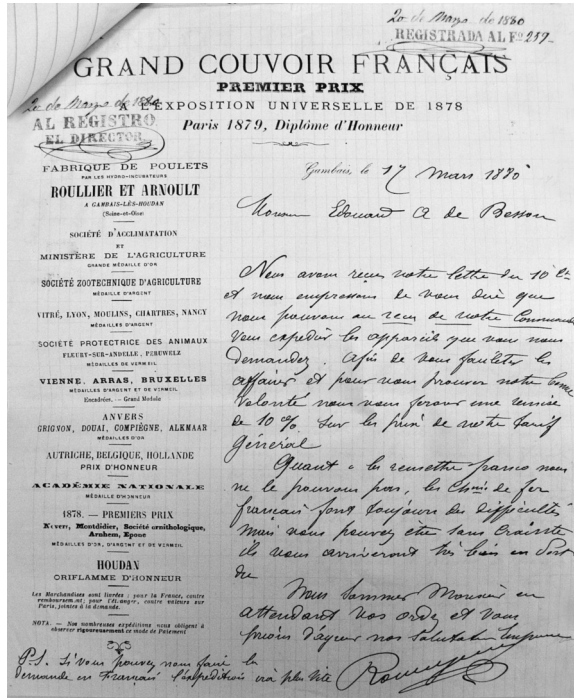 20 de Mayo de 1880
REGISTRADA AL Fº 259
GRAND COUVOIR FRANÇAIS
PREMIER PRIX
À L'EXPOSITION UNIVERSELLE DE 1878
Paris 1879, Diplôme d'Honneur
20 de Mayo de 1880
AL REGISTRO
EL DIRECTOR
FABRIQUE DE POULETS
PAR LES HYDRO-INCUBATEURS
ROULLIER ET ARNOULT
A GAMBAIS-LÈS-HOUDAN
(Seine-et-Oise)
SOCIÉTÉ D'ACCLIMATATION
ET
MINISTÈRE DE L'AGRICULTURE
GRANDE MÉDAILLE D'OR
SOCIÉTÉ ZOOTECHNIQUE D'AGRICULTURE
MÉDAILLE D'ARGENT
VITRÉ, LYON, MOULINS, CHARTRES, NANCY
MÉDAILLES D'ARGENT
SOCIÉTÉ PROTECTRICE DES ANIMAUX
FLEURY-SUR-ANDELLE, PERUWELZ
MÉDAILLES DE VERMEIL
VIENNE, ARRAS, BRUXELLES
MÉDAILLES D'ARGENT ET DE VERMEIL
Encadrées. — Grand Module
ANVERS
GRIGNON, DOUAI, COMPIÈGNE, ALKMAAR
MÉDAILLES D'OR
AUTRICHE, BELGIQUE, HOLLANDE
PRIX D'HONNEUR
ACADÉMIE NATIONALE
MÉDAILLE D'HONNEUR
1878. — PREMIERS PRIX
Nevers, Montdidier, Société ornithologique,
Arnhem, Epone
MÉDAILLES D'OR, D'ARGENT ET DE VERMEIL
HOUDAN
ORIFLAMME D'HONNEUR
Les Marchandises sont livrées : pour la France, contre
remboursement; pour l'Étranger, contre valeurs sur
Paris, jointes à la demande.
NOTA. — Nos nombreuses expéditions nous obligent à
observer rigoureusement ce mode de Paiement
Gambais, le 17 Mars 1880
Monsieur Edouard A de Besson
Nous avons reçu votre lettre du 10 Ct
et nous empressons de vous dire que
nous pouvons au recu de votre Commande
vous expedier les appareils que vous nous
demandez. Afin de vous faciliter les
affaires et pour vous prouver notre bonne
volonté nous vous ferons une remise
de 10 % sur les prix de notre tarif
Général
Quant a les remettre franco nous
ne le pouvons pas, les Chins de fer
francais font toujours des difficultés
mais vous pouvez etre sans crainte
ils vous arriveront très bien en Port
du
Nous sommes Monsieur en
attendant vos ordres et vous
prions d'agreer nos salutations
P.S. Si vous pouvez nous faire la
demande en Français l'expédition ira plus vite